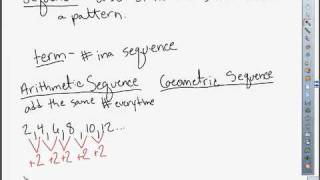 a pattern.
term - # in a sequence
Arithmetic Sequence Geometric Sequence
add the same # everytime
2, 4, 6, 8, 10, 12...
+2 +2 +2 +2 +2